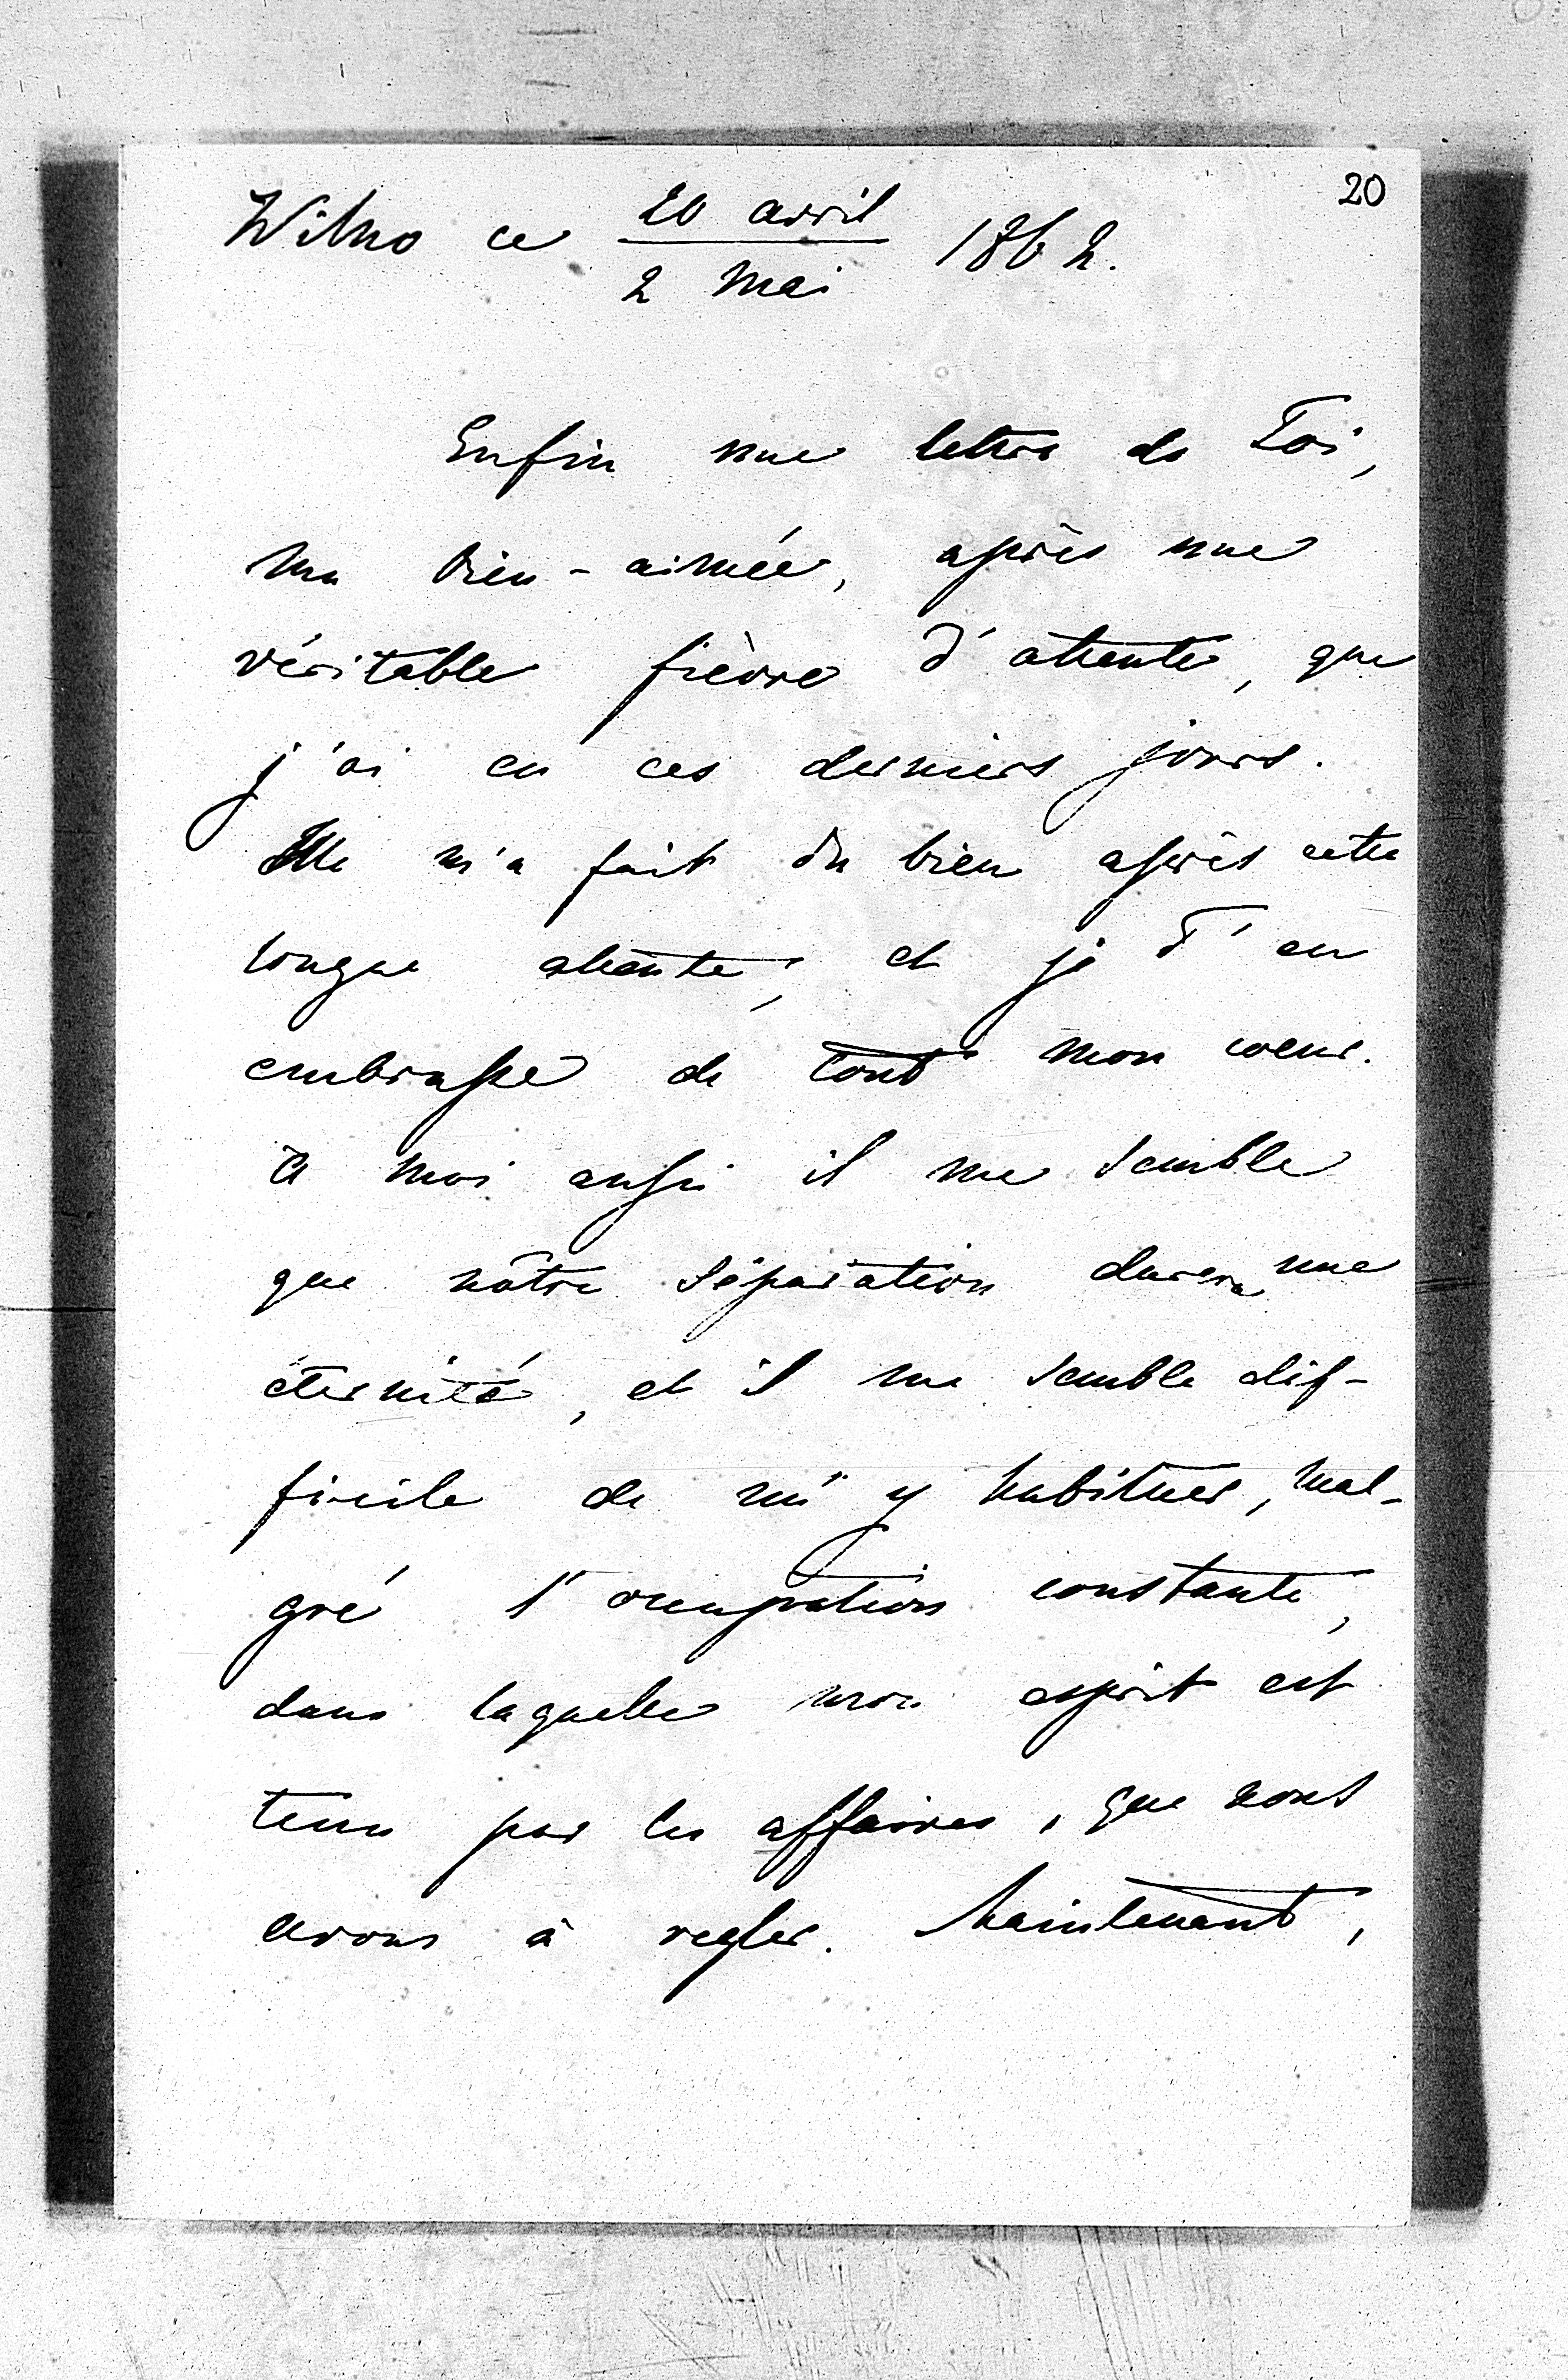 20
Wilno ce 20 avril / 2 Mai 1862.
Enfin une lettre de Toi,
ma bien-aimée, après une
véritable fièvre d'attente, que
j'ai eu ces derniers jours.
Elle m'a fait du bien après cette
longue attente, et je T'en
embrasse de tout mon coeur.
à moi aussi il me semble
que nôtre séparation durera une
éternité, et il me semble dif-
ficile de m'y habituer, mal-
gré l'occupation constante,
dans laquelle mon esprit est
tenu par les affaires, que nous
avons à regler. Maintenant,